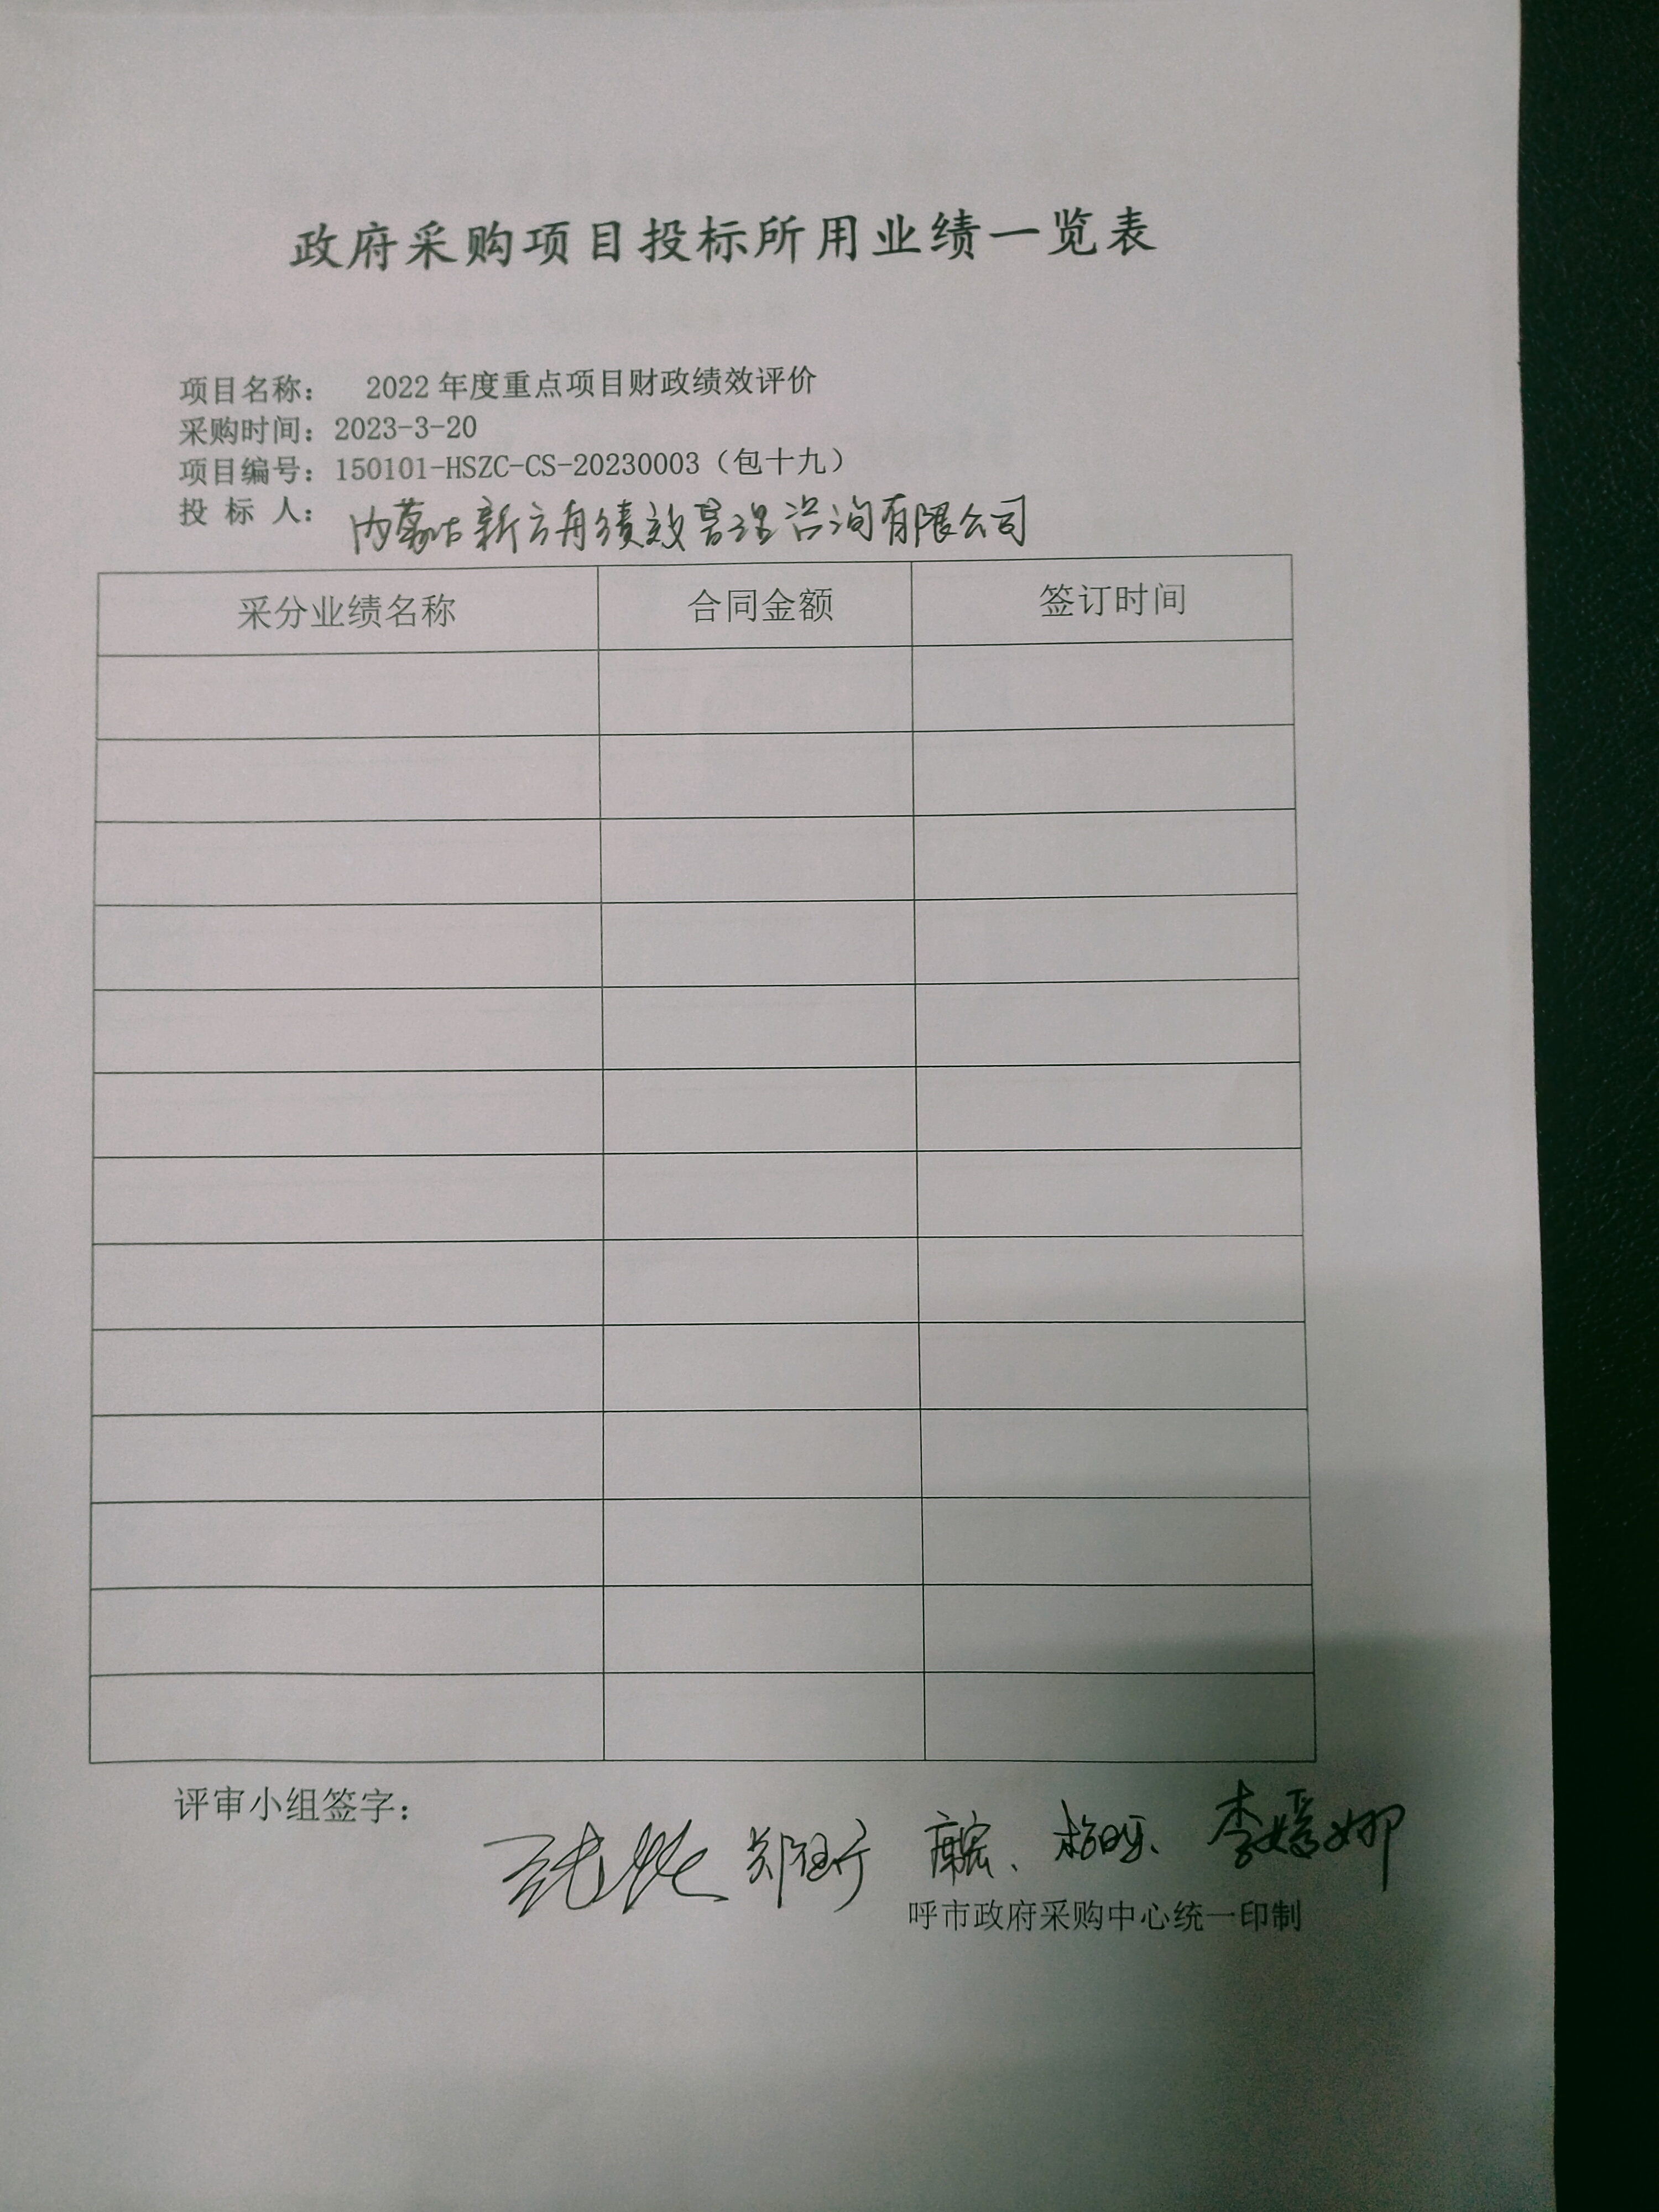 政府采购项目投标所用业绩一览表
项目名称： 2022年度重点项目财政绩效评价
采购时间：2023-3-20
项目编号：150101-HSZC-CS-20230003（包十九）
投 标 人：内蒙古新方舟绩效管理咨询有限公司
采分业绩名称 合同金额 签订时间
评审小组签字：
李媛娜
呼市政府采购中心统一印制